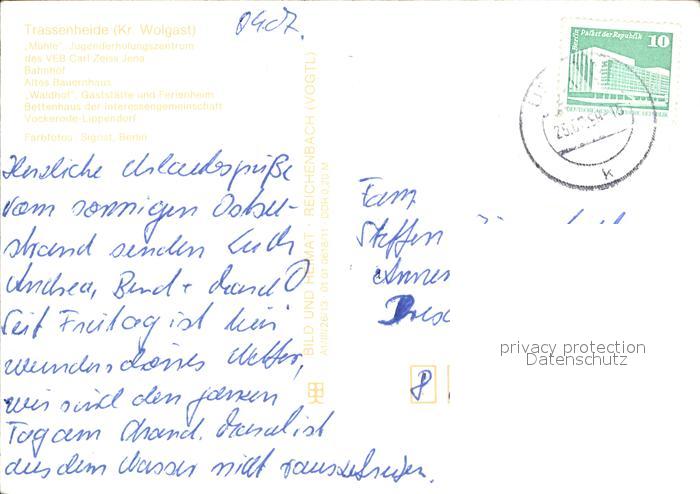 Trassenheide (Kr. Wolgast)
„Mühle", Jugenderholungszentrum
des VEB Carl Zeiss Jena
Bahnhof
Altes Bauernhaus
„Waldhof", Gaststätte und Ferienheim
Bettenhaus der Interessengemeinschaft
Vockerode-Lippendorf
Farbfotos: Signst, Berlin
04.07.
Herzliche Urlaubsgrüße
vom sonnigen Ostsee-
strand senden Euch
Andrea, Bernd +
Seit Freitag ist hier
wunderschönes Wetter,
wir sind den ganzen
Tag am Strand. ist
aus dem Wasser nicht rauszukriegen.
BILD UND HEIMAT · REICHENBACH (VOGTL)
A1/III/26/13 01 01 0618/11 DDR 0,20 M
Berlin, Palast der Republik
10
k
Fam.
Steffen
Dresd
8
privacy protection
Datenschutz